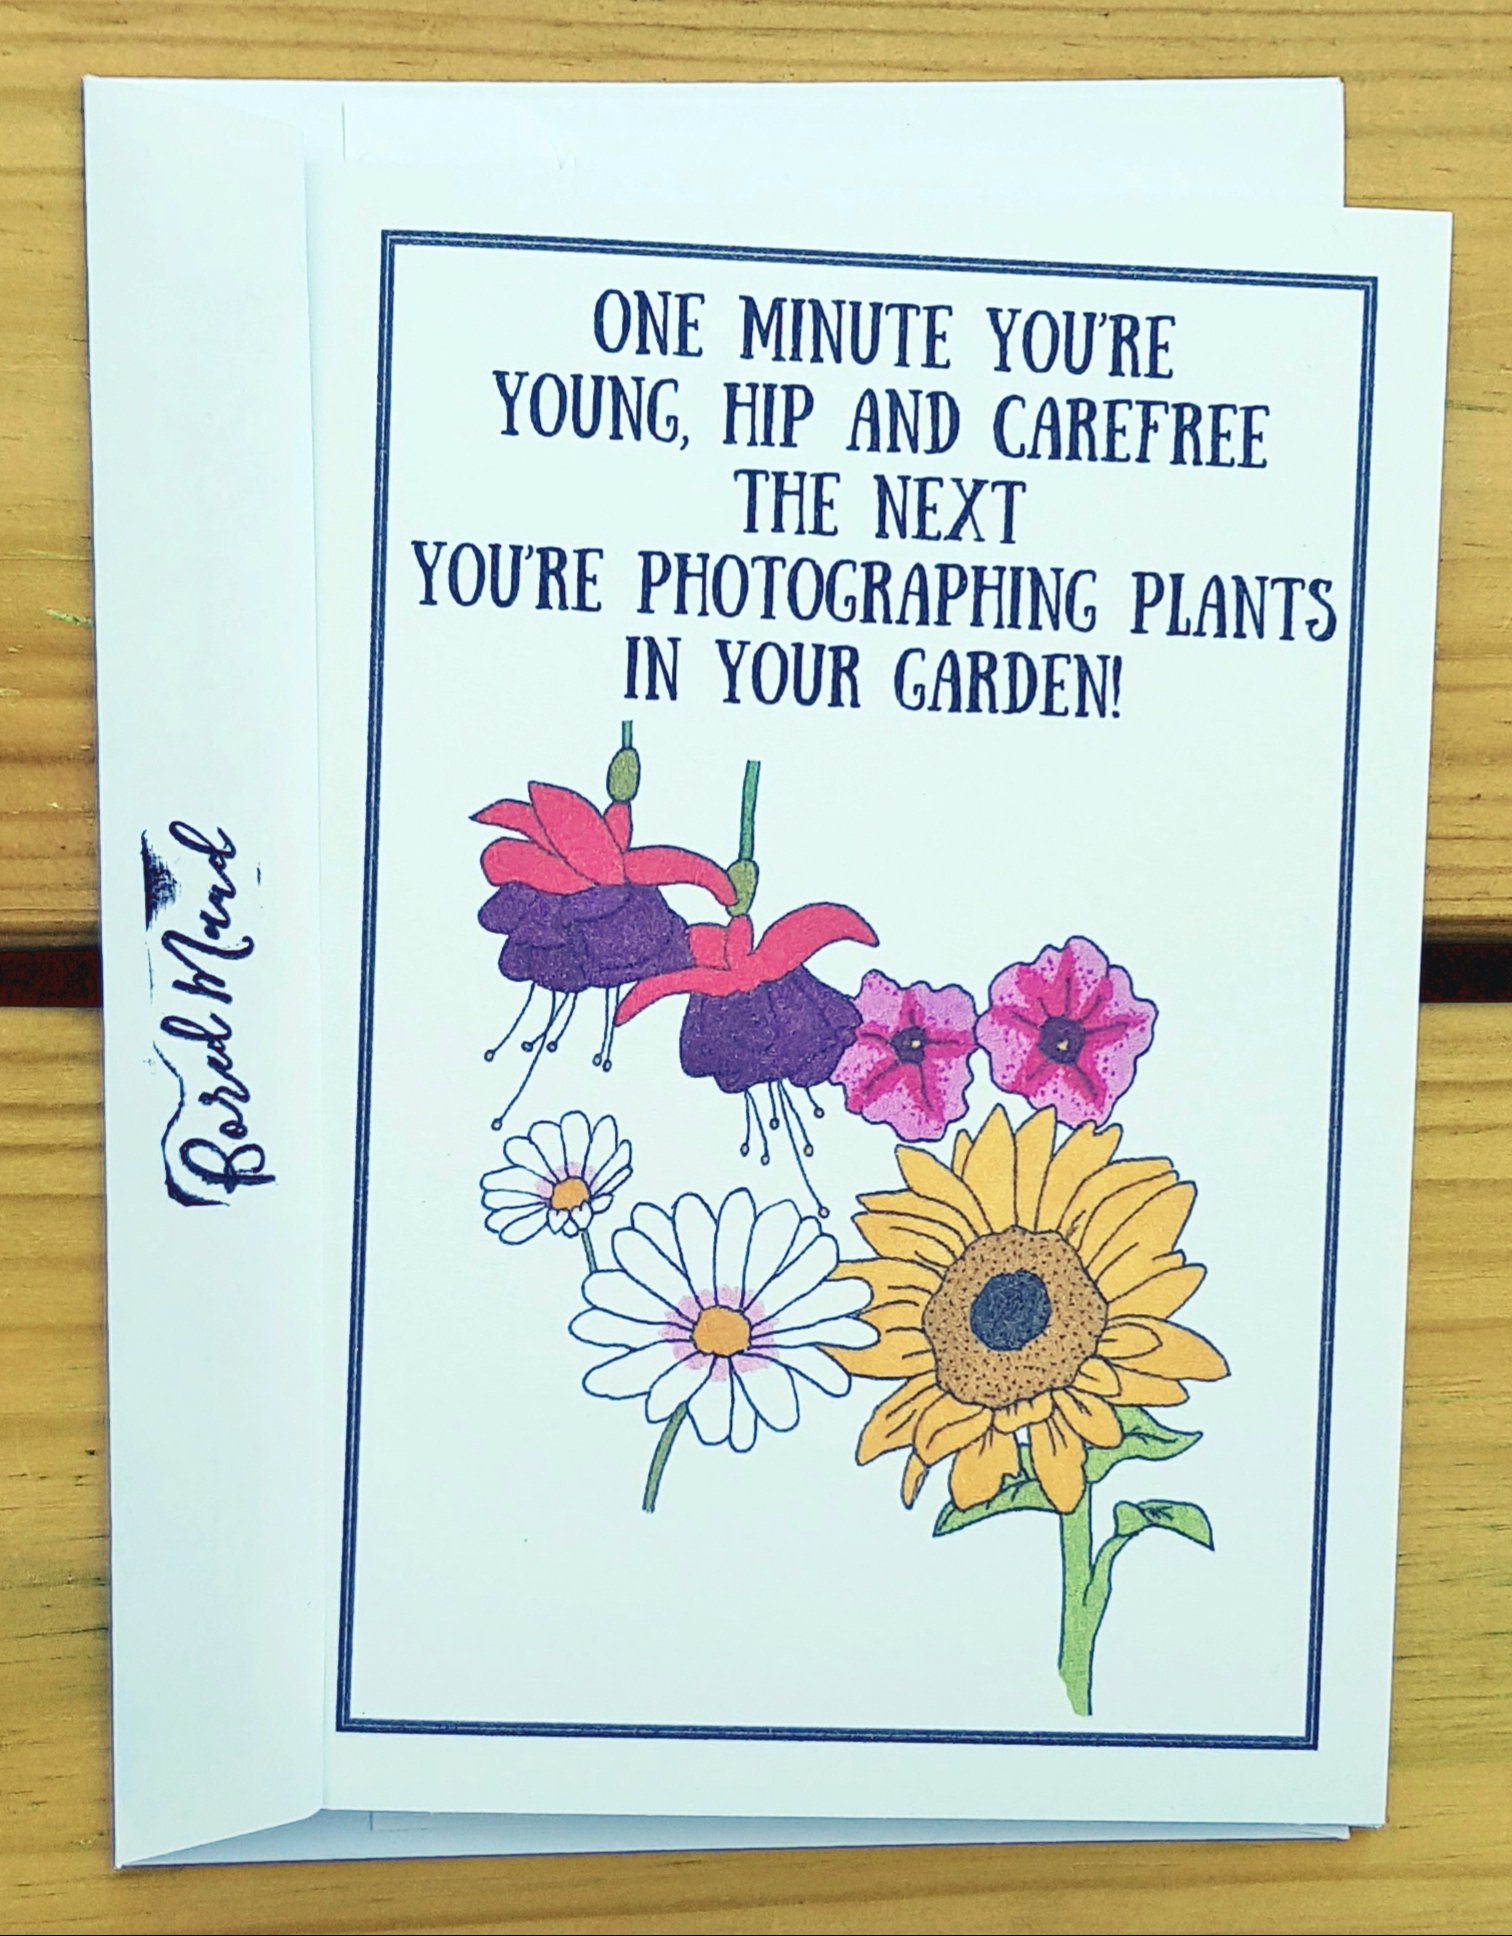 ONE MINUTE YOU'RE
YOUNG, HIP AND CAREFREE
THE NEXT
YOU'RE PHOTOGRAPHING PLANTS
IN YOUR GARDEN!
Bored Mand